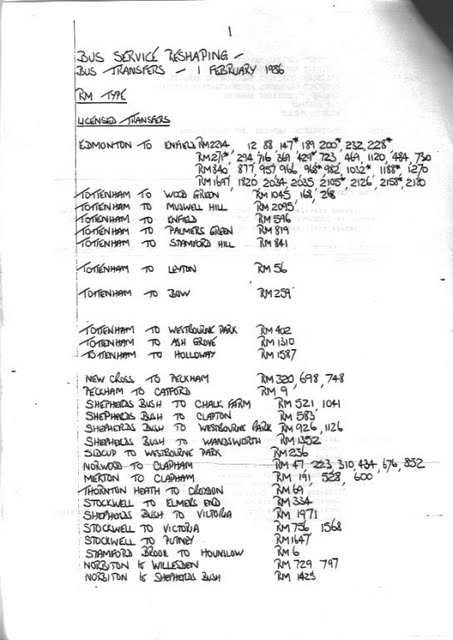 1
BUS SERVICE RESHAPING -
BUS TRANSFERS - 1 FEBRUARY 1986
RM TYPE
LICENSED TRANSFERS
EDMONTON TO ENFIELD RM2214 12 88, 147* 189 200*, 232, 228*
RM271*, 294, 716 369 429* 723, 469, 1120, 484, 730
RM840 877, 957, 966, 968* 982, 1032* 1188*, 1270
RM1697, 1820, 2034, 2035, 2105*, 2126, 2158*, 2180
TOTTENHAM TO WOOD GREEN RM1045, 168, 298
TOTTENHAM TO MUSWELL HILL RM2095
TOTTENHAM TO ENFIELD RM596
TOTTENHAM TO PALMERS GREEN RM819
TOTTENHAM TO STAMFORD HILL RM841
TOTTENHAM TO LEYTON RM56
TOTTENHAM TO BOW RM259
TOTTENHAM TO WESTBOURNE PARK RM402
TOTTENHAM TO ASH GROVE RM1310
TOTTENHAM TO HOLLOWAY RM1587
NEW CROSS TO PECKHAM RM320, 698, 748
PECKHAM TO CATFORD RM9
SHEPHERDS BUSH TO CHALK FARM RM521, 1041
SHEPHERDS BUSH TO CLAPTON RM583
SHEPHERDS BUSH TO WESTBOURNE PARK RM926, 1126
SHEPHERDS BUSH TO WANDSWORTH RM1352
SIDCUP TO WESTBOURNE PARK RM236
NORWOOD TO CLAPHAM RM47, 223, 310, 434, 676, 852
MERTON TO CLAPHAM RM191, 528, 600
THORNTON HEATH TO CROYDON RM69
STOCKWELL TO ELMERS END RM334
SHEPHERDS BUSH TO VICTORIA RM1971
STOCKWELL TO VICTORIA RM756 1568
STOCKWELL TO PUTNEY RM1647
STAMFORD BROOK TO HOUNSLOW RM6
NORBITON TO WILLESDEN RM729 797
NORBITON TO SHEPHERDS BUSH RM1425